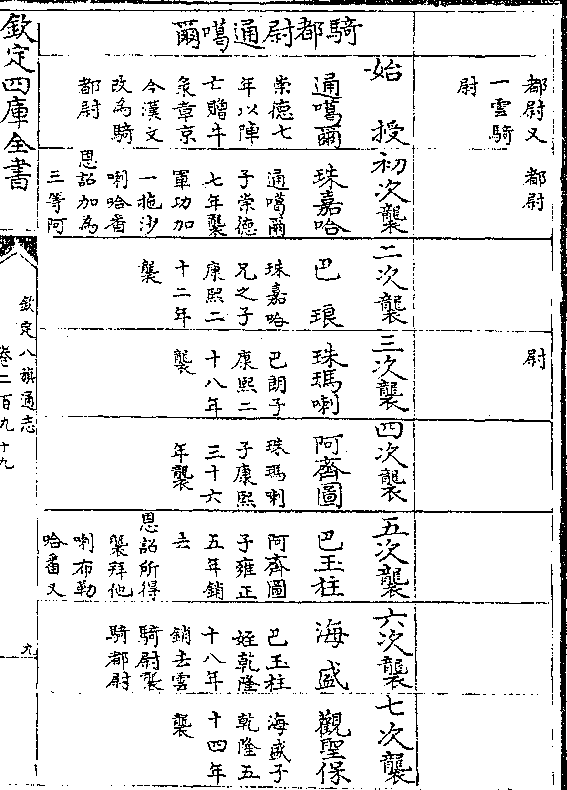 都尉又
一雲騎
尉
都尉
尉
騎都尉通噶爾
始授
通噶爾
崇德七
年以陣
亡贈牛
彔章京
今漢文
改為騎
都尉
初次襲
珠嘉哈
通噶爾
子崇德
七年襲
軍功加
一拖沙
喇哈番
恩詔加為
三等阿
二次襲
巴琅
珠嘉哈
兄之子
康熙二
十二年
襲
三次襲
珠瑪喇
巴朗子
康熙二
十八年
襲
四次襲
阿齊圖
珠瑪喇
子康熙
三十六
年襲
五次襲
巴玉柱
阿齊圖
子雍正
五年銷
去
恩詔所得
襲拜他
喇布勒
哈番又
六次襲
海盛
巴玉柱
姪乾隆
十八年
銷去雲
騎尉襲
騎都尉
七次襲
觀聖保
海盛子
乾隆五
十四年
襲
欽定四庫全書
欽定八旗通志
卷二百九十九
九